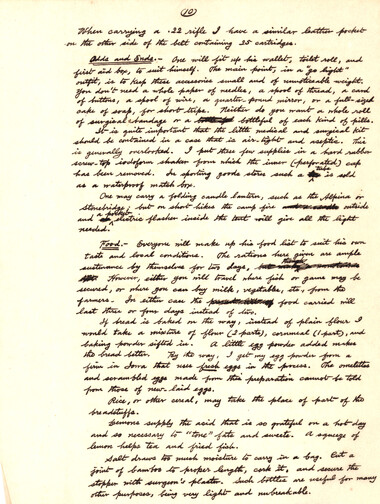 (10)
When carrying a .22 rifle I have a similar leather pocket
on the other side of the belt containing 25 cartridges.
Odds and Ends.- One will fit up his wallet, toilet roll, and
first aid box, to suit himself. The main point, in a "go light"
outfit, is to keep these accessories small and of unnoticeable weight.
You don't need a whole paper of needles, a spool of thread, a card
of buttons, a spool of wire, a quarter-pound mirror, or a full-sized
cake of soap, for short trips. Neither do you want a whole roll
of surgical bandage or a bottleful of each kind of pills.
It is quite important that the little medical and surgical kit
should be contained in a case that is air-tight and aseptic. This
is generally overlooked. I put these few supplies in a hard rubber
screw-top iodoform shaker from which the inner (perforated) cap
has been removed. In sporting goods stores such a tube is sold
as a waterproof match box.
One may carry a folding candle lantern, such as the Alpina or
Stonebridge; but on short hikes the camp fire outside
and a pocket electric flasher inside the tent will give all the light
needed.
Food.- Everyone will make up his food list to suit his own
taste and local conditions. The rations here given are ample
sustenance by themselves for two days,
However, either you will travel where fish or game may be
secured, or where you can buy milk, vegetables, etc., from the
farmers. In either case the food carried will
last three or four days instead of two.
If bread is baked on the way, instead of plain flour I
would take a mixture of flour (2 parts), cornmeal (1 part), and
baking powder sifted in. A little egg powder added makes
the bread better. By the way, I get my egg powder from a
firm in Iowa that uses fresh eggs in the process. The omelettes
and scrambled eggs made from this preparation cannot be told
from those of new-laid eggs.
Rice, or other cereal, may take the place of part of the
breadstuffs.
Lemons supply the acid that is so grateful on a hot day
and so necessary to "tone" fats and sweets. A squeeze of
lemon helps tea and fried fish.
Salt draws too much moisture to carry in a bag. Cut a
joint of bamboo to proper length, cork it, and secure the
stopper with surgeon's plaster. Such bottles are useful for many
other purposes, being very light and unbreakable.